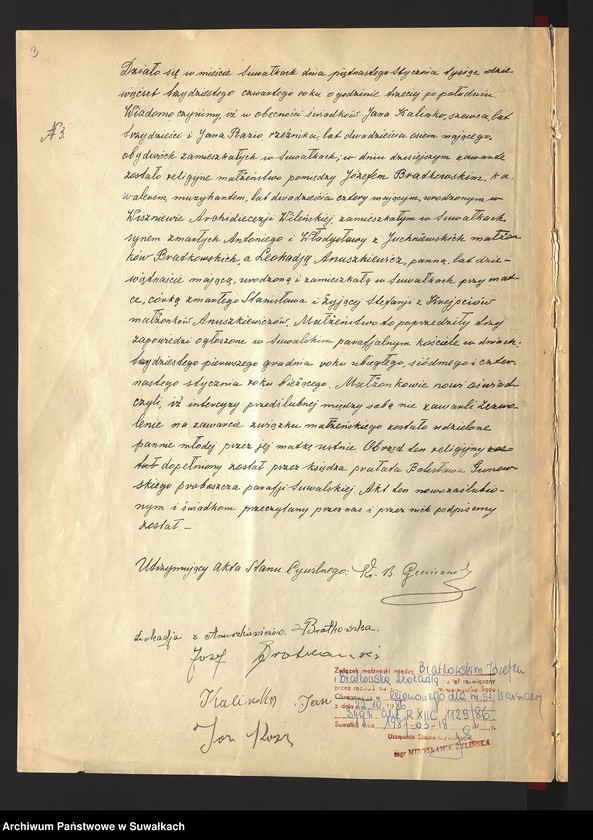 3
№ 3.
Działo się w mieście Suwałkach dnia piętnastego stycznia tysiąc dzie-
więćset trzydziestego czwartego roku o godzinie trzeciej po południu
Wiadomo czynimy, iż w obecności świadków Jana Kalinko, szewca, lat
trzydzieści i Jana rzeźnika, lat dwadzieścia osiem mającego,
obydwóch zamieszkałych w Suwałkach, w dniu dzisiejszym zawarte
zostało religijne małżeństwo pomiędzy Józefem Bratkowskim, ka-
walerem, muzykantem, lat dwadzieścia cztery mającym, urodzonym w
Wiszniewie Archidiecezji Wileńskiej zamieszkałym w Suwałkach
synem zmarłych Antoniego i Władysławy z Juchniewskich małżon
ków Bratkowskich a Leokadją Anuszkiewicz, panną, lat dzie-
więtnaście mającą, urodzoną i zamieszkałą w Suwałkach przy mat
ce, córką zmarłego Stanisława i żyjącej Stefanji z
małżonków Anuszkiewiczów. Małżeństwo to poprzedziły trzy
zapowiedzi ogłoszone w Suwalskim parafjalnym kościele w dniach:
trzydziestego pierwszego grudnia roku ubiegłego, siódmego i czter
nastego stycznia roku bieżącego. Małżonkowie nowi oświad
czyli, iż intercyzy przedślubnej między sobą nie zawarli Zezwo
lenie na zawarcie związku małżeńskiego zostało udzielone
pannie młodej przez jej matkę ustnie. Obrzęd ten religijny zos-
tał dopełniony został przez księdza prałata Bolesława Gumow-
skiego proboszcza parafji Suwalskiej. Akt ten nowozaślubio-
nym i świadkom przeczytany przez nas i przez nich podpisany
został. –
Utrzymujący Akta Stanu Cywilnego: Ks. B. Gumowski
Leokadja z Anuszkiewiczów Bratkowska.
Józef Bratkowski
Kalinko Jan
Jan
Związek małżeński między Bratkowskim Józefem
i Bratkowską Leokadią został rozwiązany
Rejonowego dla m. st. Warszawy
z dnia 22.10.1986
Sygn. akt R XIIC 1129/86
Suwałki dnia 1987-03-18 r.
Urzędnik Stanu
mgr MIROSŁAWA ŻYLIŃSKA
Archiwum Państwowe w Suwałkach